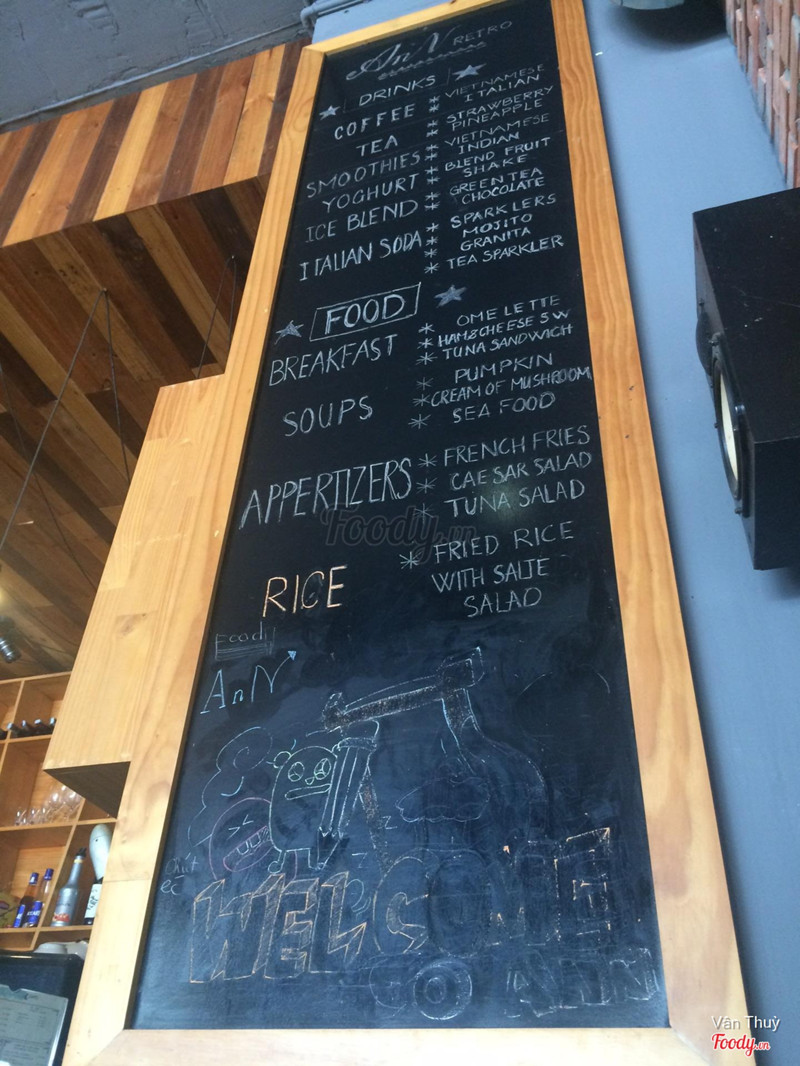 An'N RETRO
DRINKS
COFFEE * VIETNAMESE
* ITALIAN
TEA * STRAWBERRY
* PINEAPPLE
SMOOTHIES * VIETNAMESE
* INDIAN
YOGHURT * BLEND FRUIT
* SHAKE
ICE BLEND * GREEN TEA
* CHOCOLATE
ITALIAN SODA * SPARKLERS
* MOJITO
* GRANITA
* TEA SPARKLER
FOOD
BREAKFAST * OMELETTE
* HAM&CHEESE SW
* TUNA SANDWICH
SOUPS * PUMPKIN
* CREAM OF MUSHROOM
* SEA FOOD
APPERTIZERS * FRENCH FRIES
* CAESAR SALAD
* TUNA SALAD
RICE * FRIED RICE
WITH SALTE
SALAD
Foody.vn
Foody
AnN
Chút
éc
WELCOME
TO
ANN
Vân Thuỳ
Foody.vn